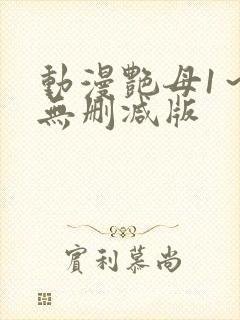 動漫艷母1～
無删減版
實利慕尚